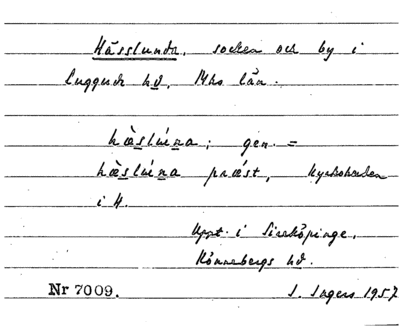 Hässlunda, socken och by i
Luggude hd, Mhs län.
hæslúna; gen. =
hæslúna præst, kyrkoherden
i H.
Uppt. i Sireköpinge,
Rönnebergs hd.
Nr 7009. S. Ingers 1957